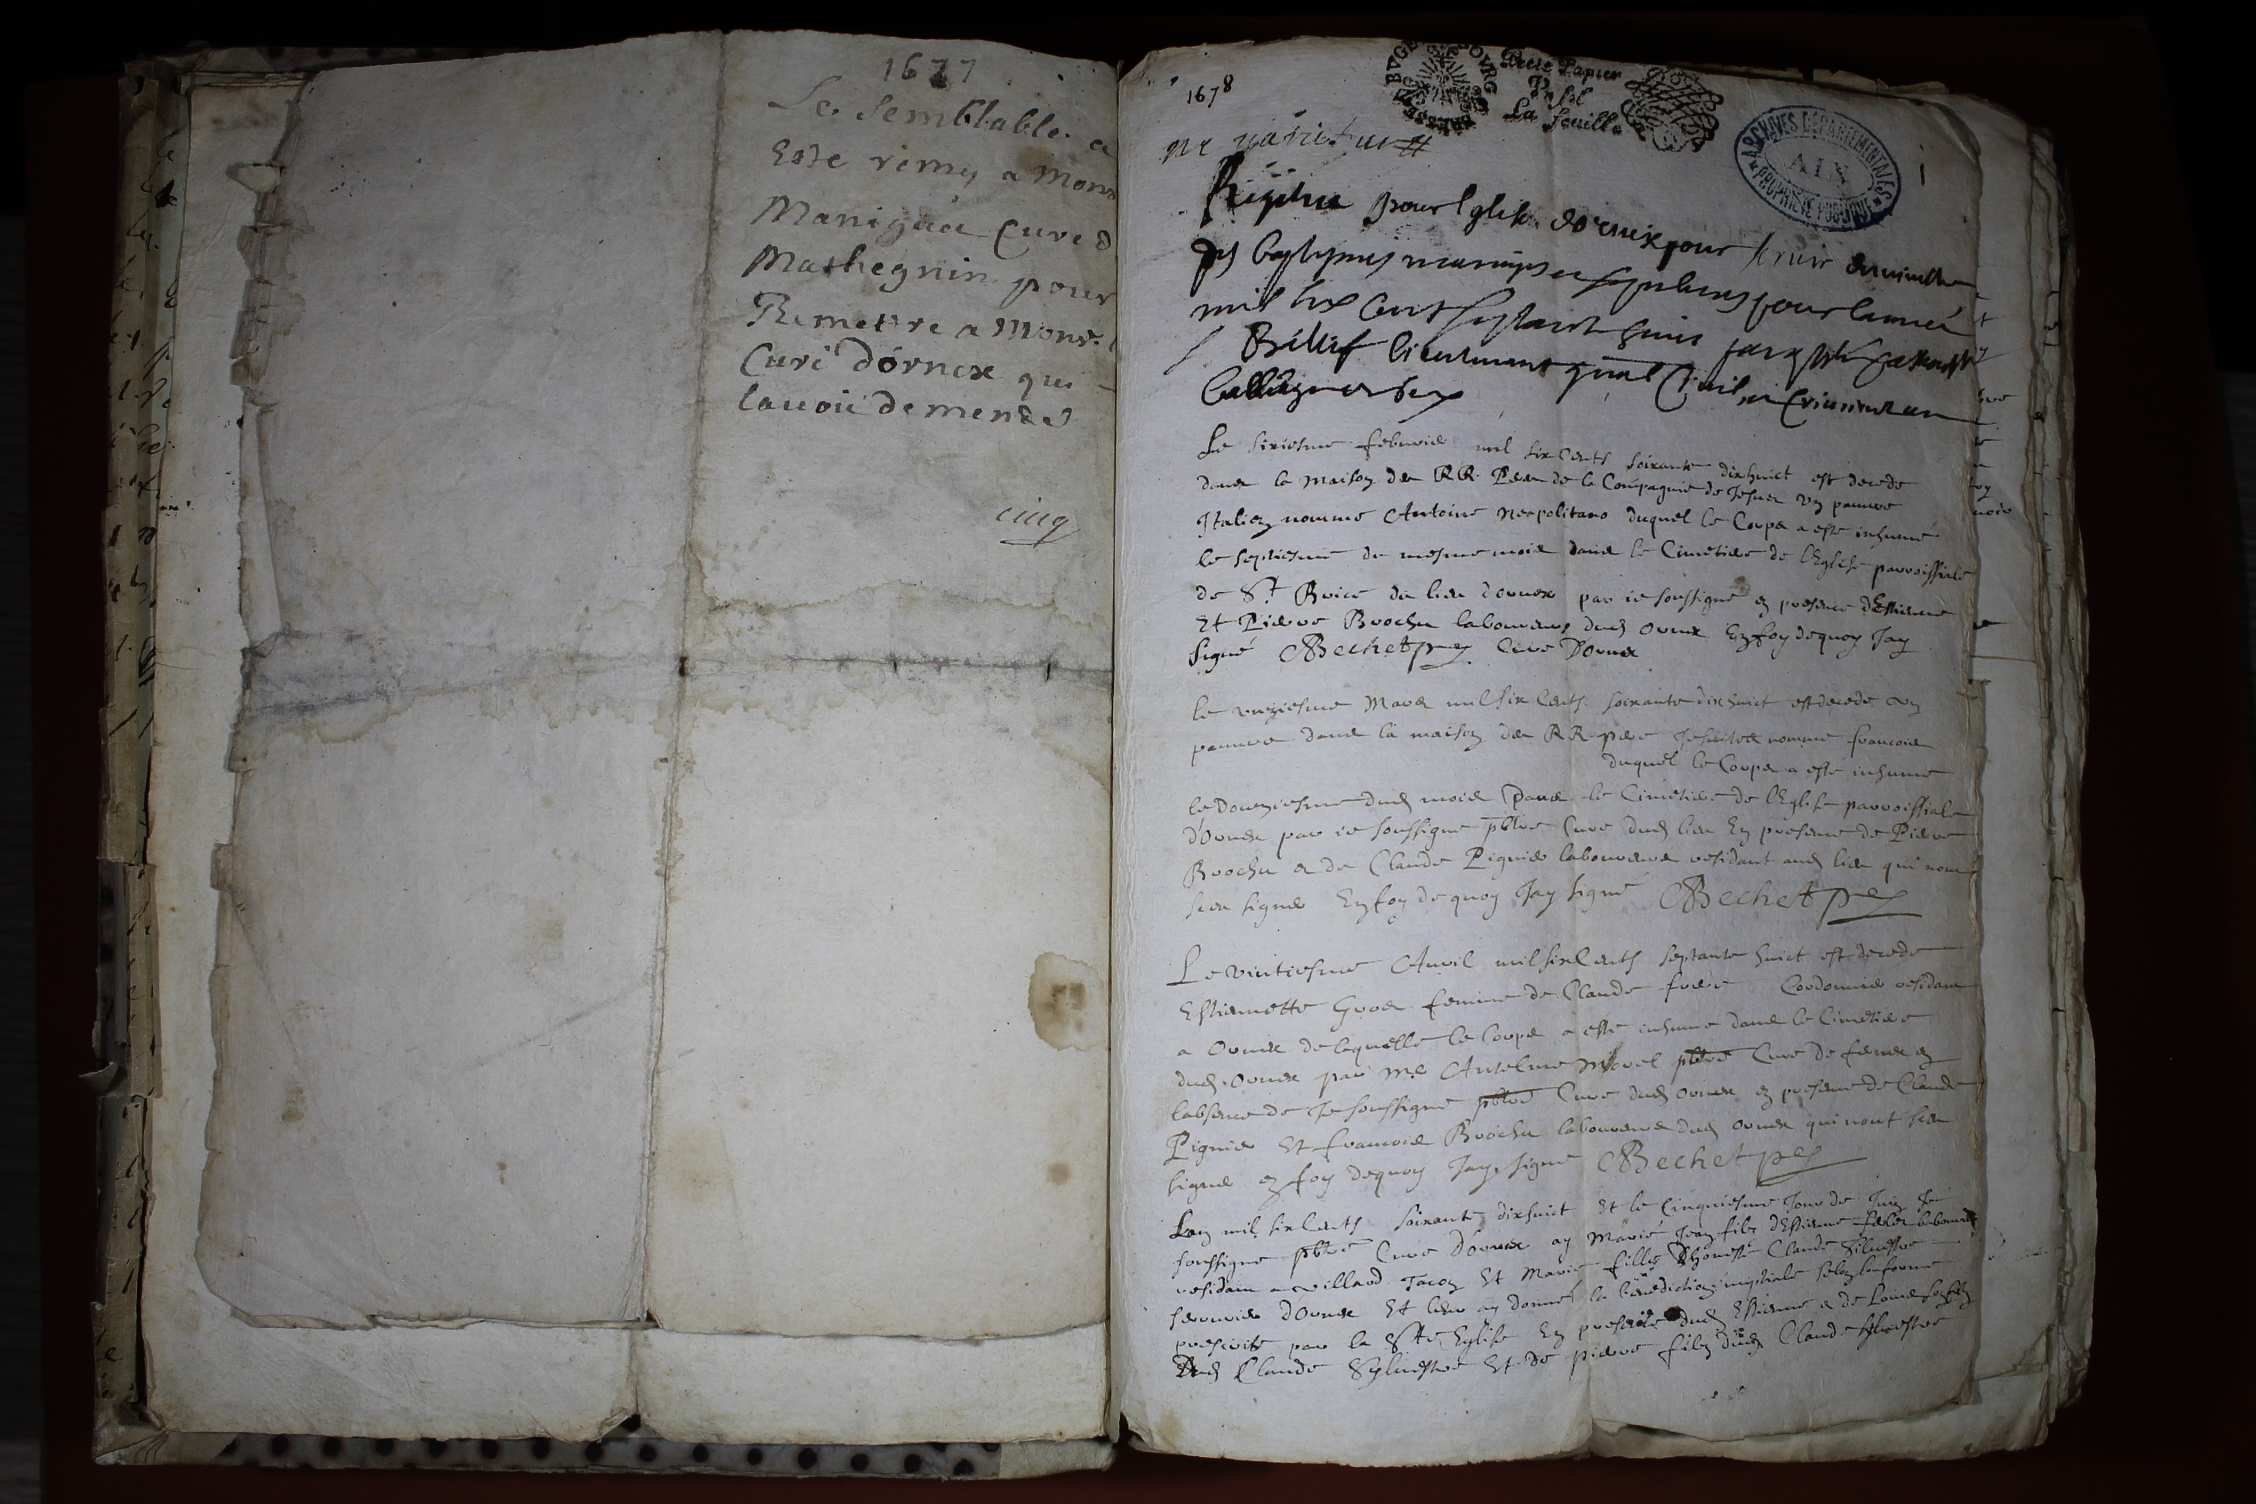 1677
Le semblable a
Este remy a Mons
Manigua Cure d
Mathegnin pour
Remettre a Mons.
Curé dornex qui
lauoit demendé
cinq
1678
ne varietur
BVGE BOVRG
Petit Papier
La feuille
ARCHIVES DEPARTEMENTALES
AIN
PROPRIETE PUBLIQUE
1
Registre pour leglise dornex pour seruir
des baptesmes mariages et sepultures pour lannee
mil six cent septante huict par
lieutenant gnal Ciuil et Criminel au
balliage de Gex
Le sixiesme febvrier mil six cents soixante dixhuict est decede
dans la maison des RR Peres de la Compagnie de Jesus un pauure
Italien nomme Antoine neapolitano duquel le Corps a este inhumé
le septiesme du mesme mois dans le Cimetiere de lEglise parroissiale
de St Brice du lieu dornex par ie soussigné en presence dEstienne
Et Pierre Brochu laboureurs dud Ornex En foy dequoy Jay
signé Bechet Cure Dornex
le unziesme Mars mil six Cents soixante dixhuict est decede un
pauure dans la maison des RR peres Jesuites nomme francois
duquel le Corps a este inhume
le Douziesme dud mois Dans le Cimetiere de lEglise parroissiale
dOrnex par ie soussigne pbtre Cure dud lieu En presence de Pierre
Brochu et de Claude Pignier laboureurs residant aud lieu qui nont
sceu signer En foy de quoy Jay signé Bechet
Le vintiesme Auril mil six Cents septante huict est decede
Estiennette Gros femme de Claude frere Cordonnier residant
a Ornex de laquelle le Corps a este inhume dans le Cimetiere
dud Ornex par Me Anselme Morel pbtre Cure de fernex en
labsence de Je soussigne pbtre Cure dud Ornex en presence de Claude
Pignier Et francois Brochu laboureurs dud Ornex qui nont sceu
signer en foy dequoy Jay signe Bechet
Lan mil six Cents soixante dixhuict Et le Cinquiesme Jour de Juin Je
soussigne pbtre Cure dornex ay Marié Jean filz dEstienne
residant a villard Tacon Et Marie fille dhoneste Claude Siluestre
dOrnex Et leur ay donné la benediction nuptiale selon la forme
prescrite par la Ste Eglise En presence dud Estienne et de Louis
Dud Claude Syluestre Et de pierre filz dud Claude Syluestre